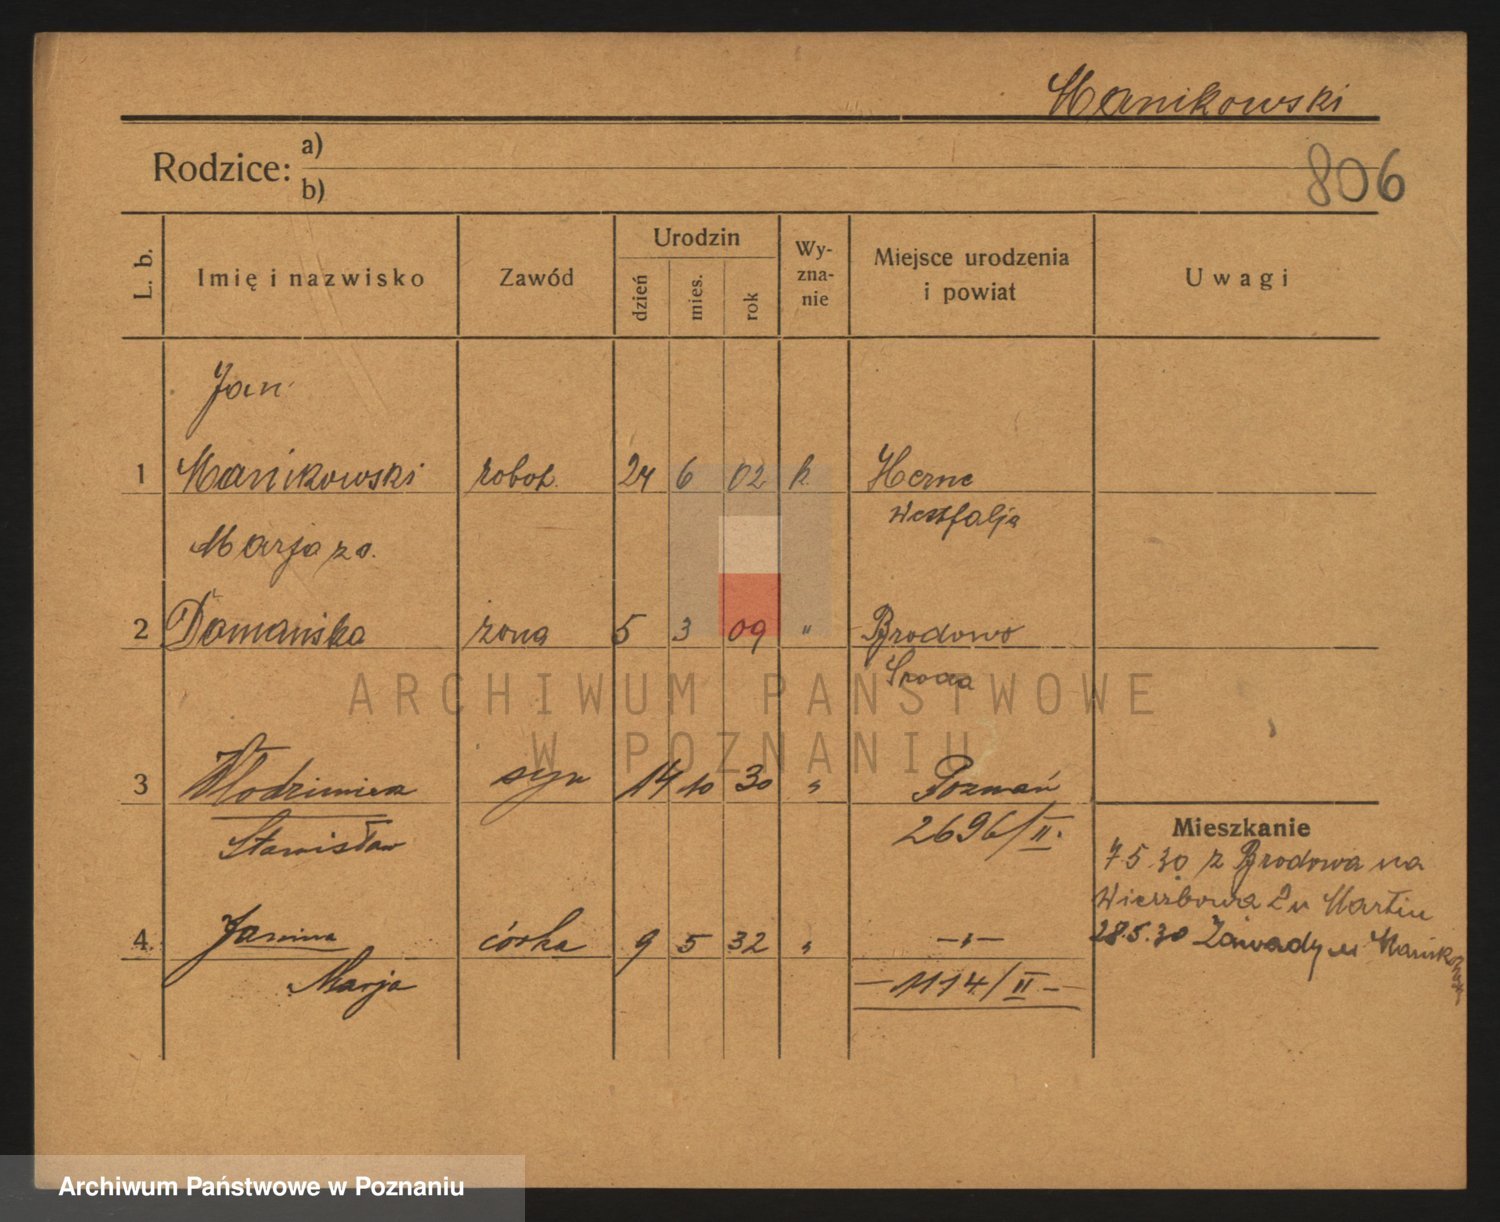 Manikowski
Rodzice: a)
b)
806
L. b. Imię i nazwisko Zawód Urodzin dzień mies. rok Wy-zna-nie Miejsce urodzenia i powiat Uwagi
Jan
1 Manikowski robot. 24 6 02 k Herne
Westfalja
Marja zd.
2 Domańska żona 5 3 09 " Brodowo
Środa
3 Włodzimierz syn 14 10 30 " Poznań
Stanisław 2696/II.
Mieszkanie
7.5.30 z Brodowa na
Wierzbowa 2 u Martin
28.5.30 Zawady u Manikowski
4. Janina córka 9 5 32 " -"-
Marja -1114/II-
ARCHIWUM PAŃSTWOWE
W POZNANIU
Archiwum Państwowe w Poznaniu